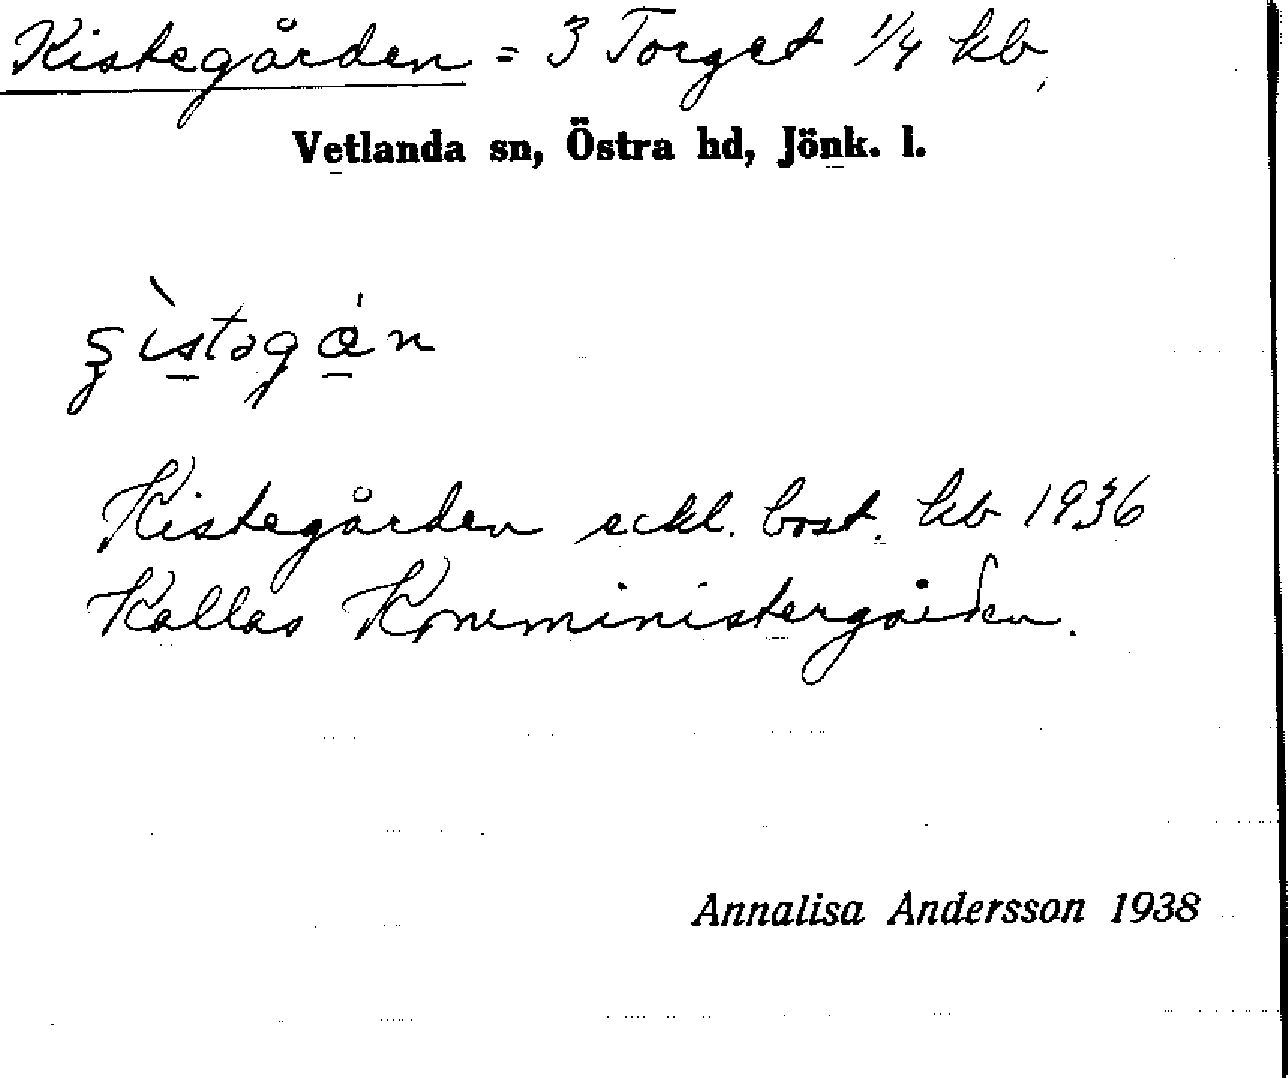 Kistegården = 3 Torget 1/4 kb
Vetlanda sn, Östra hd, Jönk. l.
Kistegården eckl. bost. kb 1936
Kallas Komministergården.
Annalisa Andersson 1938